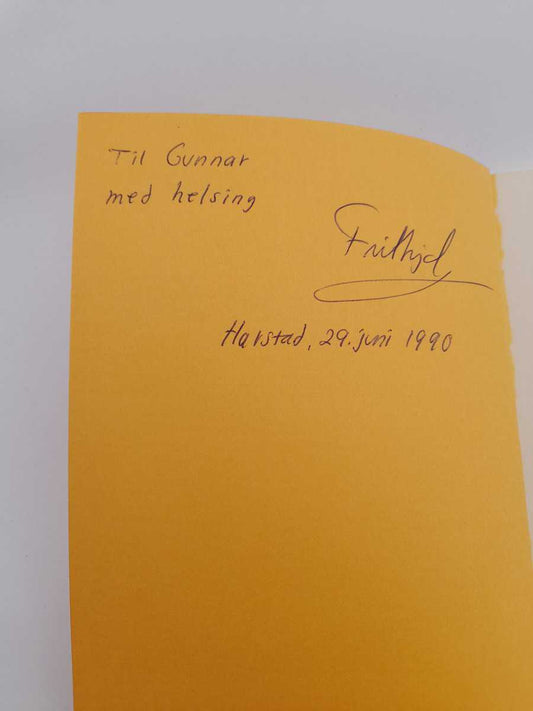 Til Gunnar
med helsing
Frithjof
Harstad, 29. juni 1990